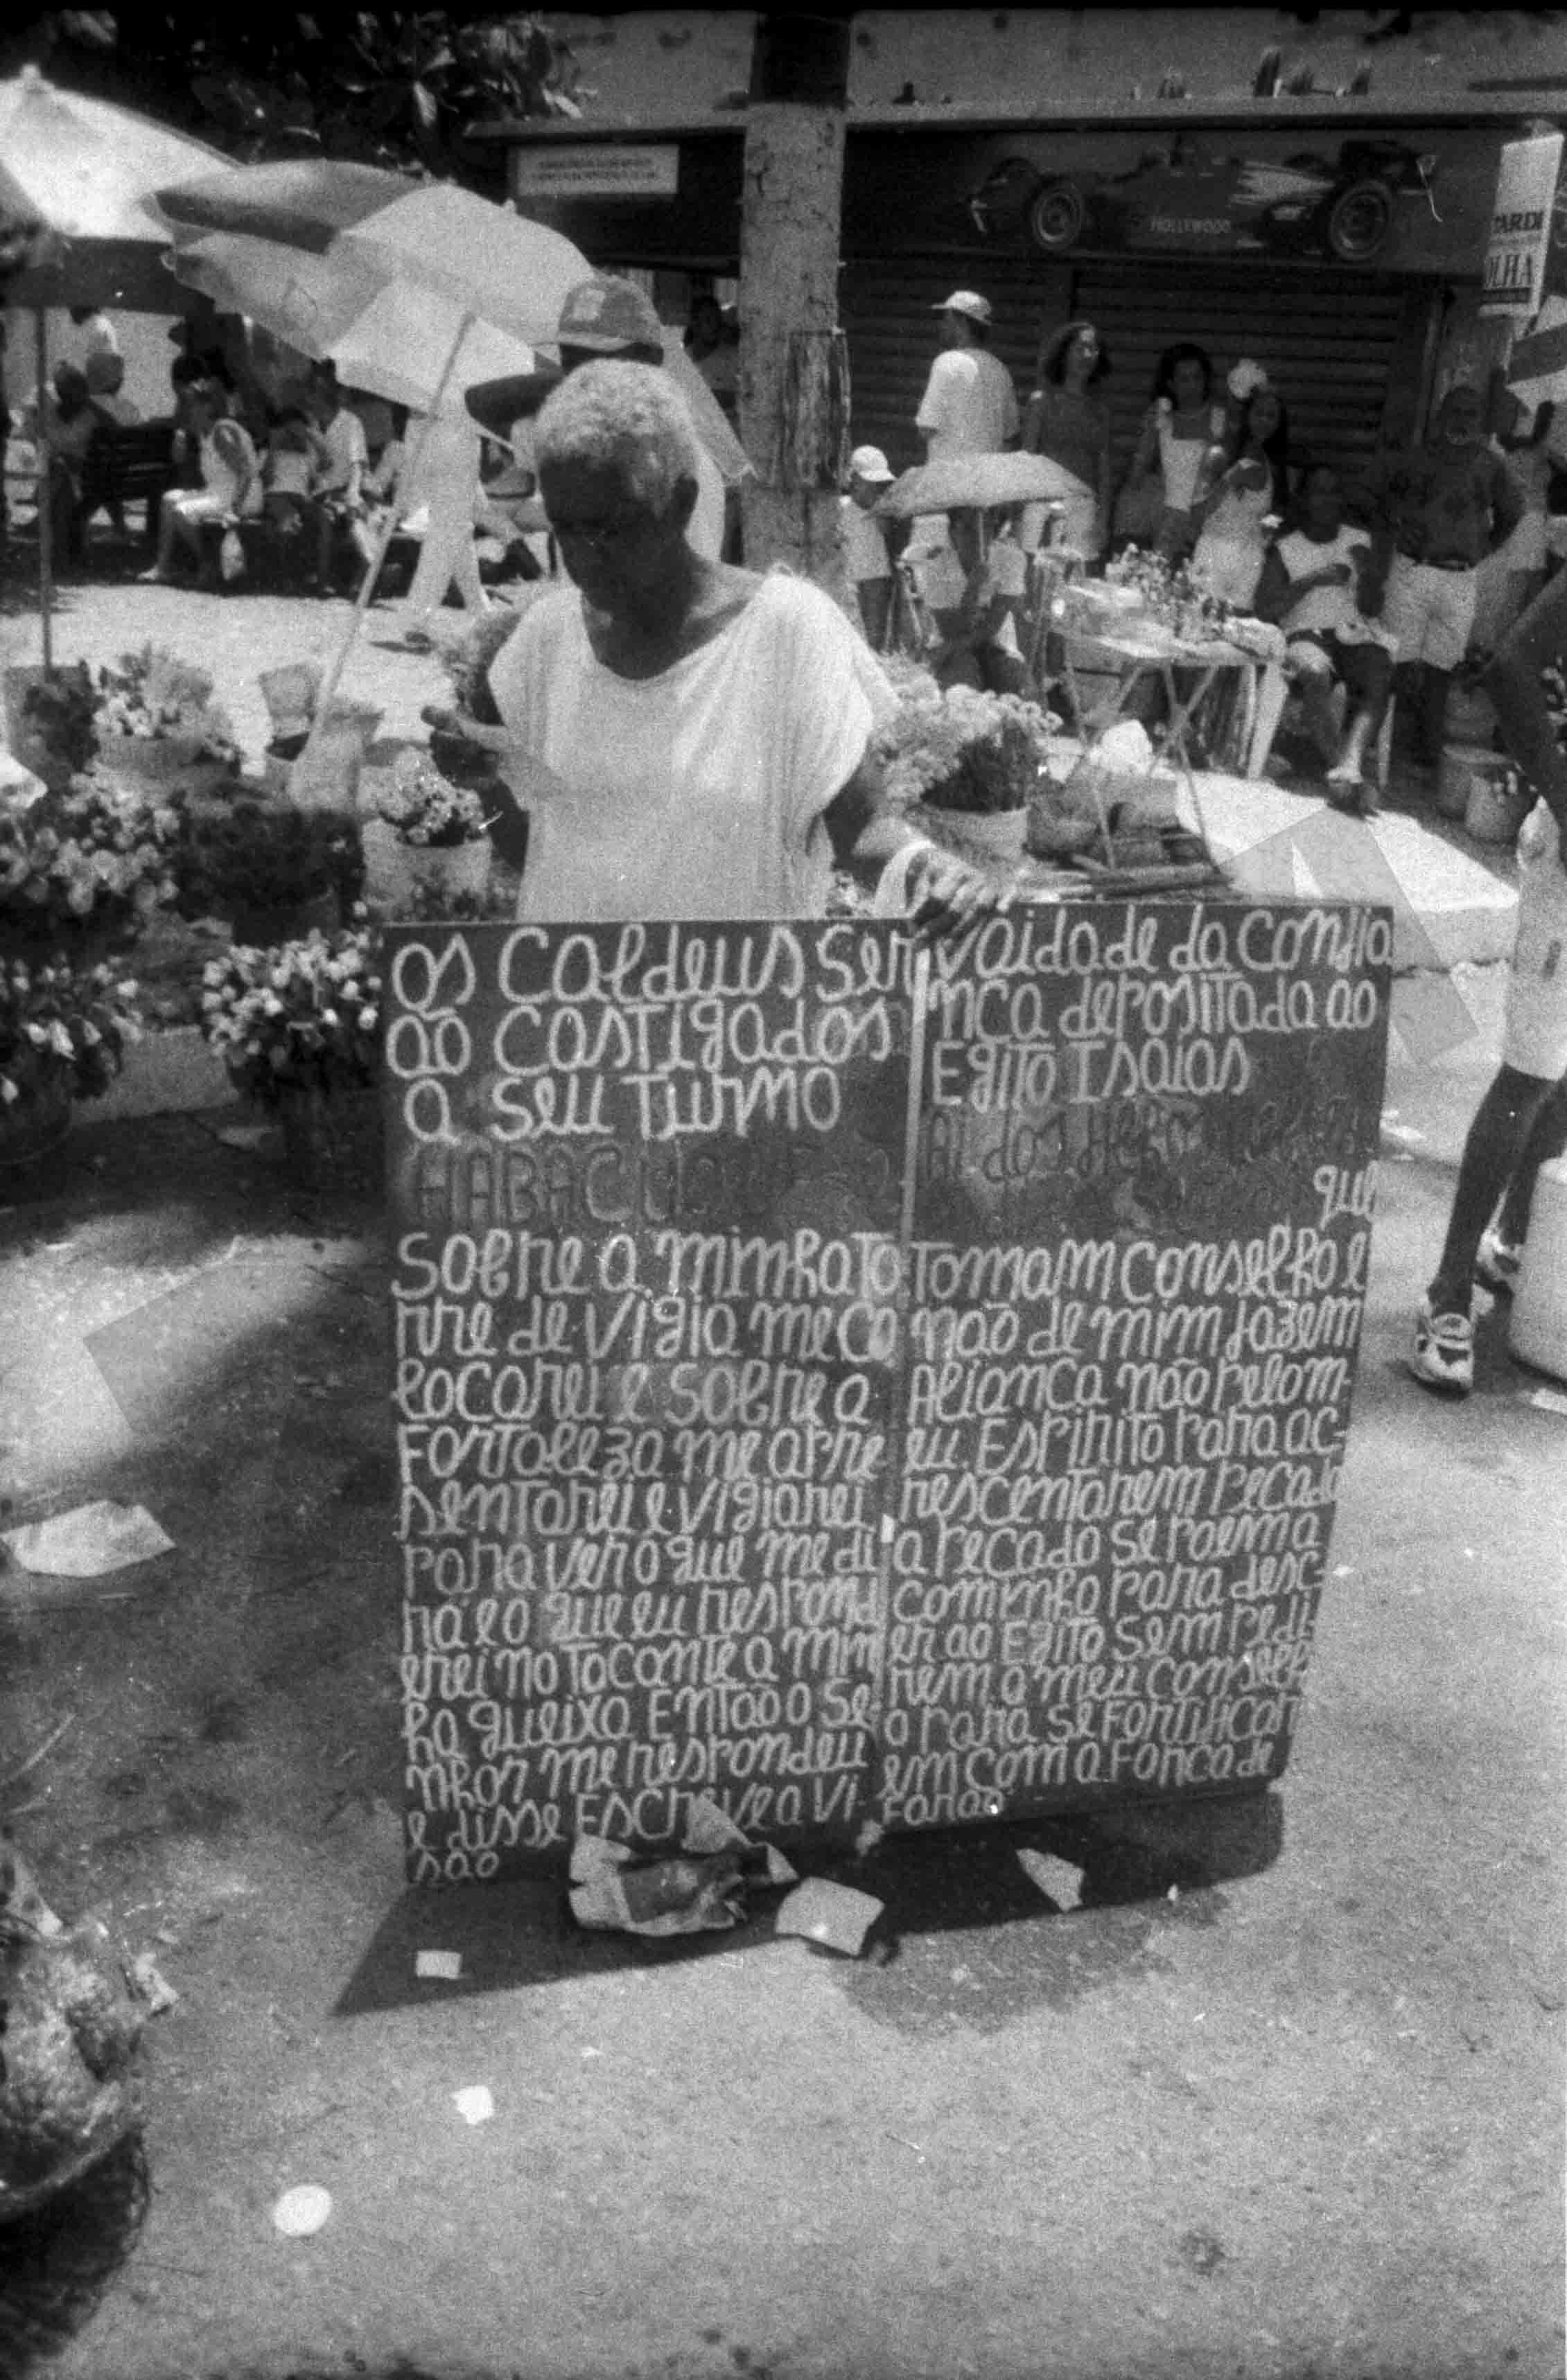 HOLLYWOOD
OLHA
os Caldeus ser
ão castigados
a seu turmo
HABACUQUE
Sobre a minha to
rre de vigia me co
locarei e sobre a
Fortaleza me apre
sentarei e vigiarei
para ver o que me di
rá e o que eu respond
erei no tocante a min
ha queixa Então o se
nhor me respondeu
e disse Escreve a vi-
são
vaidade da confia
nca depositada ao
Egito Isaias
Ai dos
que
Tomam conselho e
não de mim fazem
Alianca não pelo m-
eu Espirito para ac-
rescentarem pecado
a pecado se poem a
caminho para desc-
er ao Egito sem pedi-
rem o meu conselh
o para se fortificar
em com a forca de
Farao